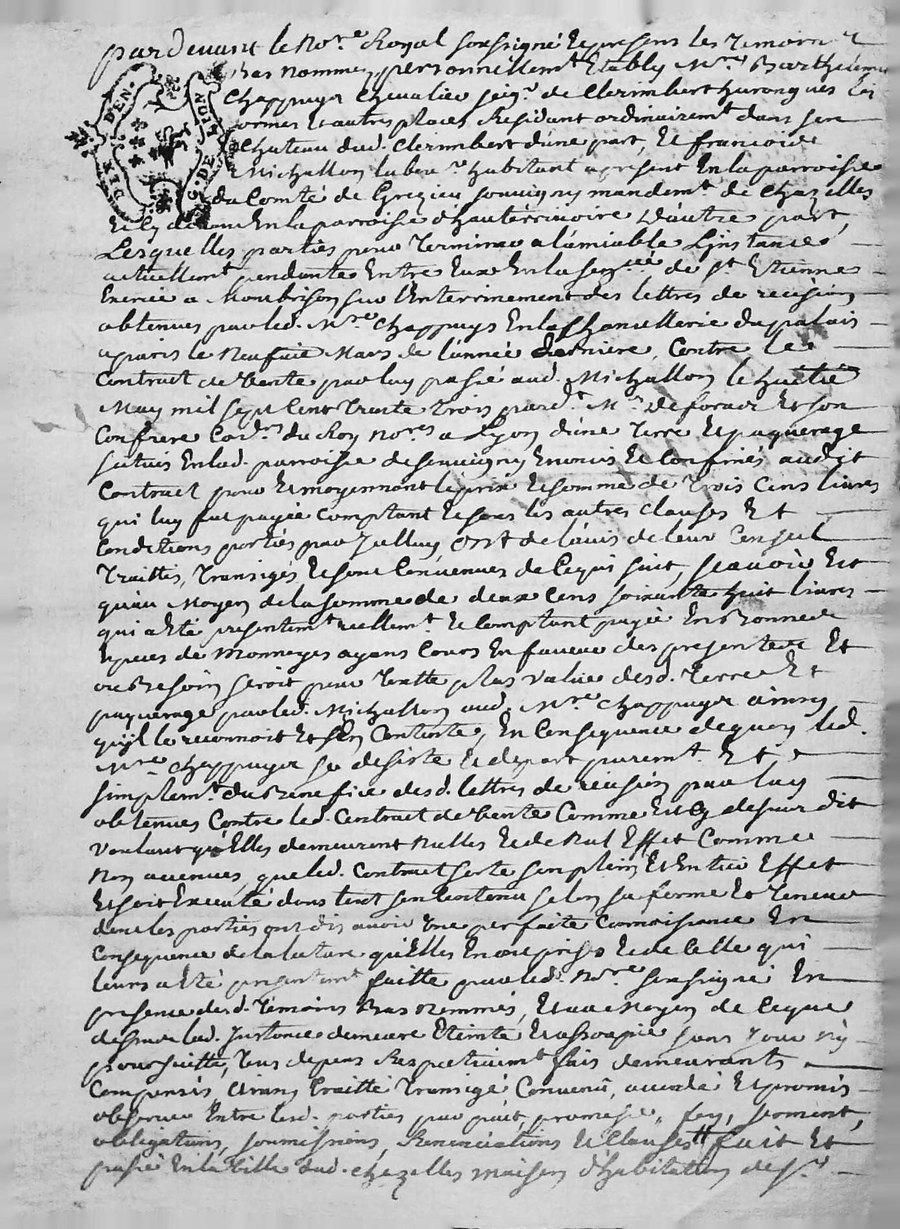 pardevant le No.re Royal soussigné et presens les temoins
bas nommes, personnellem.t Etably M.re Barthelemy
Chappuys Chevalier seig.r de Clerimbert
DIX DEN. G. DE LION
et autres places Residant ordinairem.t dans son
Chateau dud. Clerimbert d'une part, Et francois
Michallon habitant apresent En la parroisse
du Comté de Grezieu souvigny mandem.t de Chazelles
Et cy devant En la parroisse d'hauterivoire D'autre part,
Lesquelles parties pour Terminer a l'amiable L'instance
actuellem.t pendante Entre Eux En la de S.t Etienne
Exercée a Montbrison sur l'Enterrinement des lettres de recision
obtenues par led. M.re Chappuys En la Chancellerie du palais
a paris le Neufvie Mars de l'année Derniere, Contre le
Contract de Vente par luy passé aud. Michallon le huitie
May mil sept Cent Trente Trois pard.t M.e Et son
Confrere Con.rs du Roy No.res a Lyon d'une Terre Et paquerage
scitués En lad. parroisse de souvigny Et Confinés audit
Contract pour Et moyennant le prix Et somme de Trois Cens livres
qui luy fut payée comptant Et sous les autres clauses Et
Conditions portées par Icelluy, Ont de l'avis de leur Conseil
Traittés, Transigés, Et sont Convenues de Ce qui suit, scavoir Est
qu'au Moyen de la somme de deux Cens soixante huit livres
qui a Eté presentem.t reellem.t Et Comptant payée En bonnes
Especes de Monnoyes ayans Cours En faveur des presentes Et
ou Besoin seroit pour Traitte plus value desd. Terre Et
paquerage par led. Michallon aud. M.re Chappuys ainsy
qu'il le reconnoit Et s'En Contente, En Consequence dequoy led.
M.re Chappuys se desiste Et depart purem.t Et
simplem.t du Benefice desd. lettres de recision par luy
obtenues Contre led. Contract de Vente Comme Est cy dessus dit
voulant qu'Elles demeurent Nulles Et de Nul Effet Comme
Non avenues, que led. Contract sorte son plein Et Entier Effet
Et soit Executé dans tout son Contenu selon sa forme Et Teneur
dont les parties ont dis avoir Une perfaite Connoissance En
Consequence de la lecture qu'Elles En ont prise Et de Celle qui
leurs a Eté presentem.t faitte par led. No.re soussigné En
presence desd. Temoins Bas Nommés, Et au Moyen de Ceque
dessus lad. Instance demeure Eteinte Et assoupie sans Tour Ny
poursuitte, Tous depens Respectivem.t fais demeurants
Compensés, Ainsy Traitté Transigé Convenu, accordé Et promis
observer Entre lesd. parties par promesse, foy, serment,
obligations, soumissions, Renonciations Et Clauses fait Et
passé En la Ville dud. Chazelles maison d'habitation de S.r